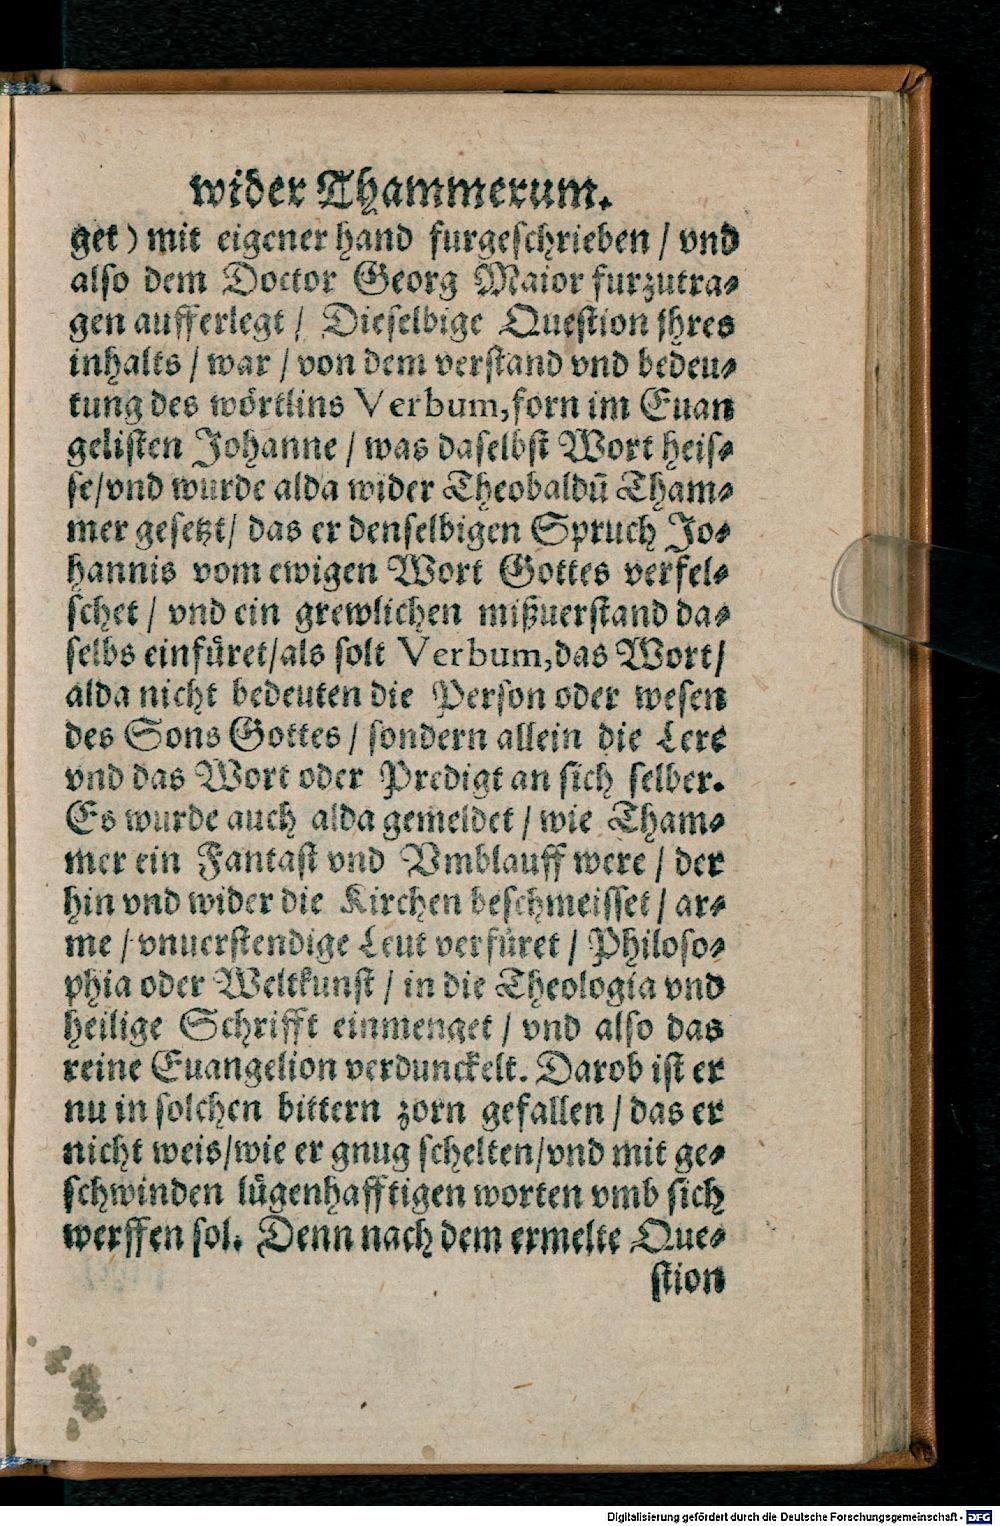 wider Thammerum.
get) mit eigener hand furgeschrieben / vnd
also dem Doctor Georg Maior furzutra-
gen aufferlegt / Dieselbige Question jhres
inhalts / war / von dem verstand vnd bedeu-
tung des wörtlins Verbum, forn im Euan
gelisten Johanne / was daselbst Wort heis-
se/vnd wurde alda wider Theobaldū Tham-
mer gesetzt/ das er denselbigen Spruch Jo-
hannis vom ewigen Wort Gottes verfel-
schet / vnd ein grewlichen mißuerstand da-
selbs einfüret/als solt Verbum, das Wort/
alda nicht bedeuten die Person oder wesen
des Sons Gottes / sondern allein die Lere
vnd das Wort oder Predigt an sich selber.
Es wurde auch alda gemeldet / wie Tham-
mer ein Fantast vnd Vmblauff were / der
hin vnd wider die Kirchen beschmeisset / ar-
me / vnuerstendige Leut verfüret / Philoso-
phia oder Weltkunst / in die Theologia vnd
heilige Schrifft einmenget / vnd also das
reine Euangelion verdunckelt. Darob ist er
nu in solchen bittern zorn gefallen / das er
nicht weis/wie er gnug schelten/vnd mit ge-
schwinden lügenhafftigen worten vmb sich
werffen sol. Denn nach dem ermelte Que-
stion
Digitalisierung gefördert durch die Deutsche Forschungsgemeinschaft - DFG